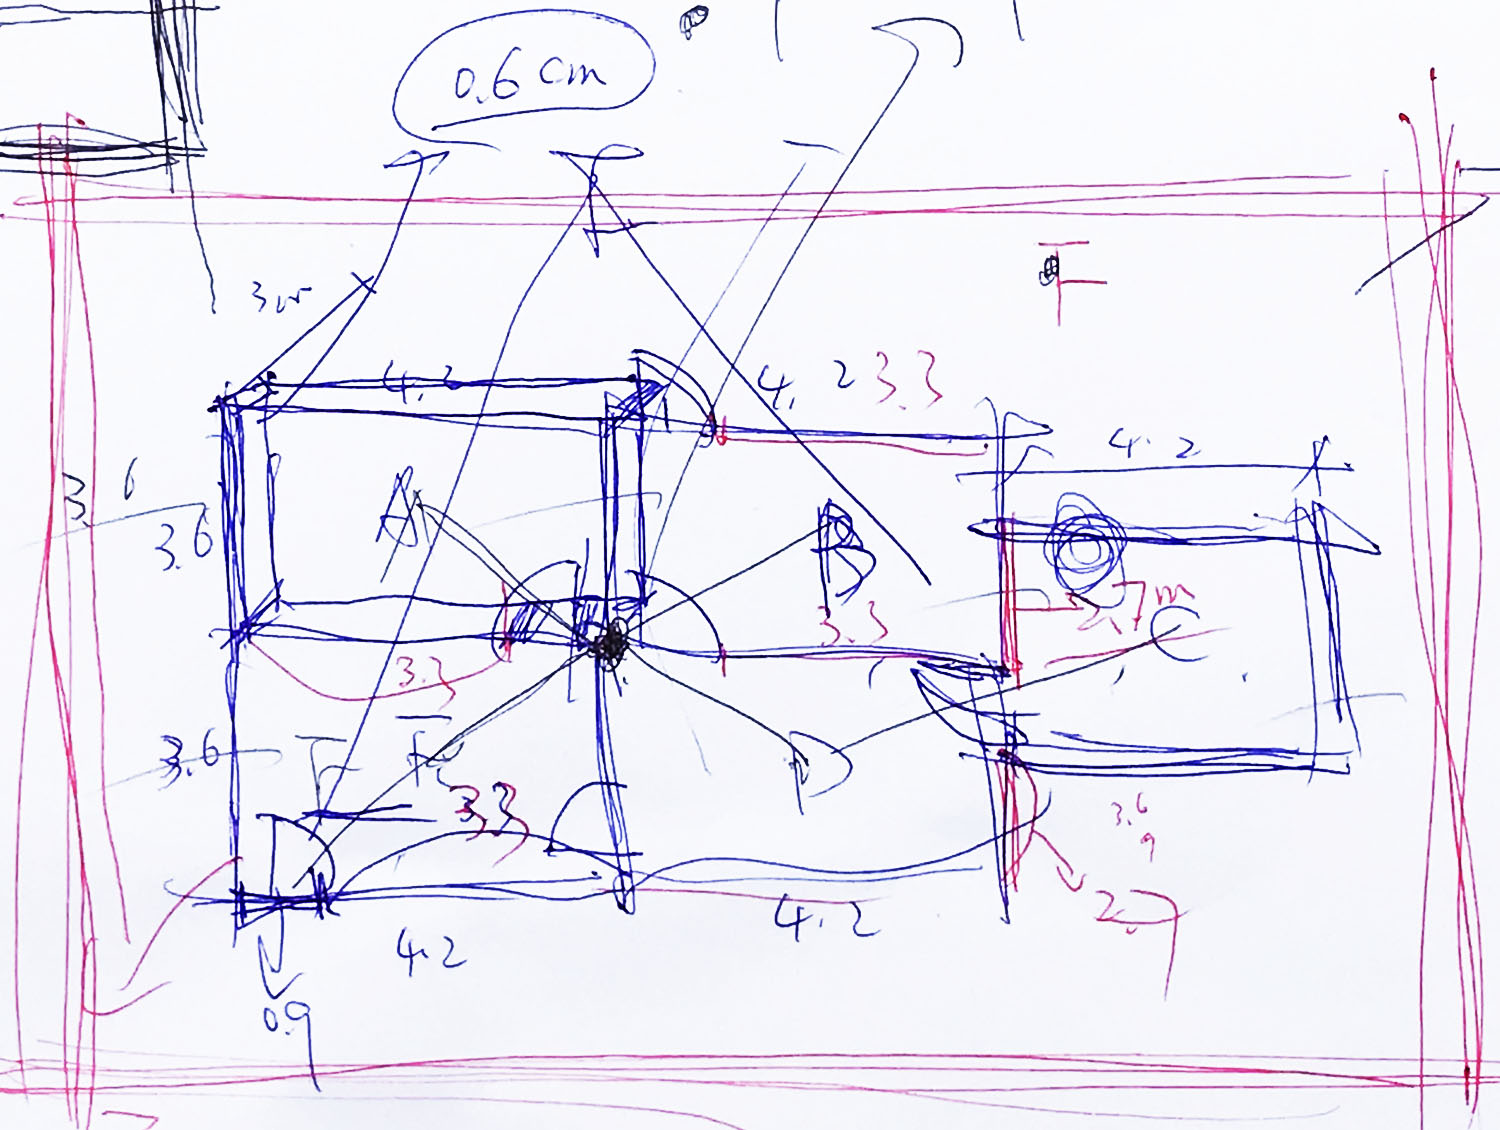 0.6 cm
4.2
4.2 3.3
4.2
3.6
3.6
A
B
3.3
2.7m
C
3.3
3.6
D
3.3
3.6
9
2.7
4.2
4.2
0.9